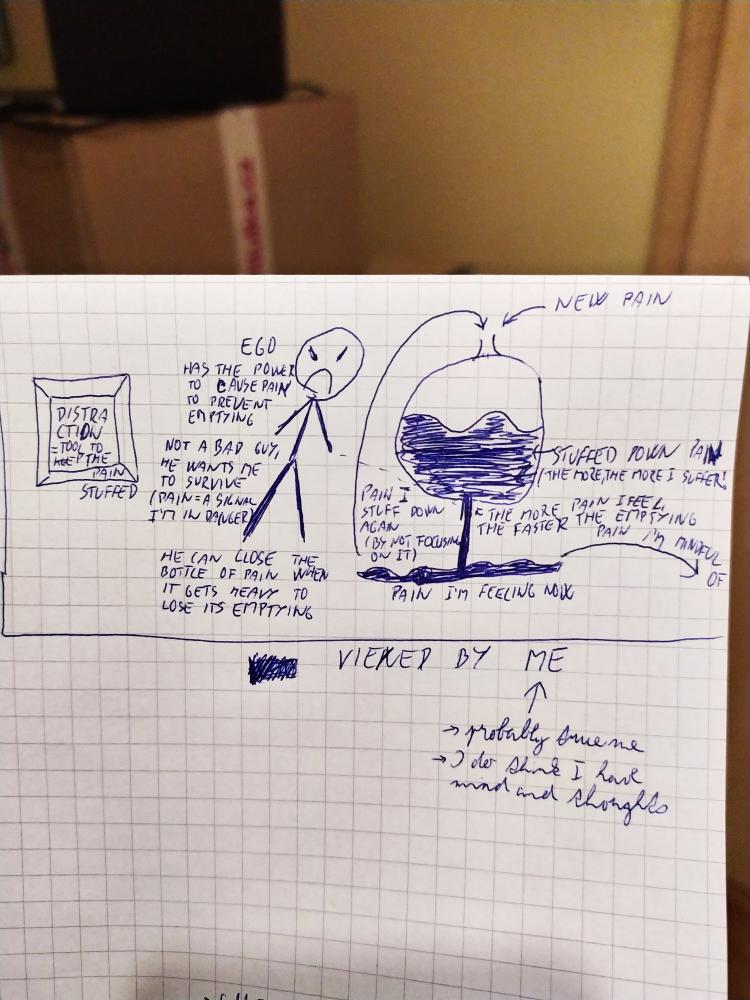 NEW PAIN
EGO
HAS THE POWER
TO CAUSE PAIN
TO PREVENT
EMPTYING
NOT A BAD GUY,
HE WANTS ME
TO SURVIVE
(PAIN = A SIGNAL
I'M IN DANGER)
HE CAN CLOSE THE
BOTTLE OF PAIN WHEN
IT GETS HEAVY TO
LOSE ITS EMPTYING
DISTRA
CTION
= TOOL TO
KEEP THE
PAIN
STUFFED
STUFFED DOWN PAIN
(THE MORE, THE MORE I SUFFER!)
THE MORE PAIN I FEEL,
THE FASTER THE EMPTYING
PAIN I
STUFF DOWN
AGAIN
(BY NOT FOCUSING
ON IT)
PAIN I'M MINDFUL
OF
PAIN I'M FEELING NOW
VIEWED BY ME
→ probably true me
→ I do think I have
mind and thoughts